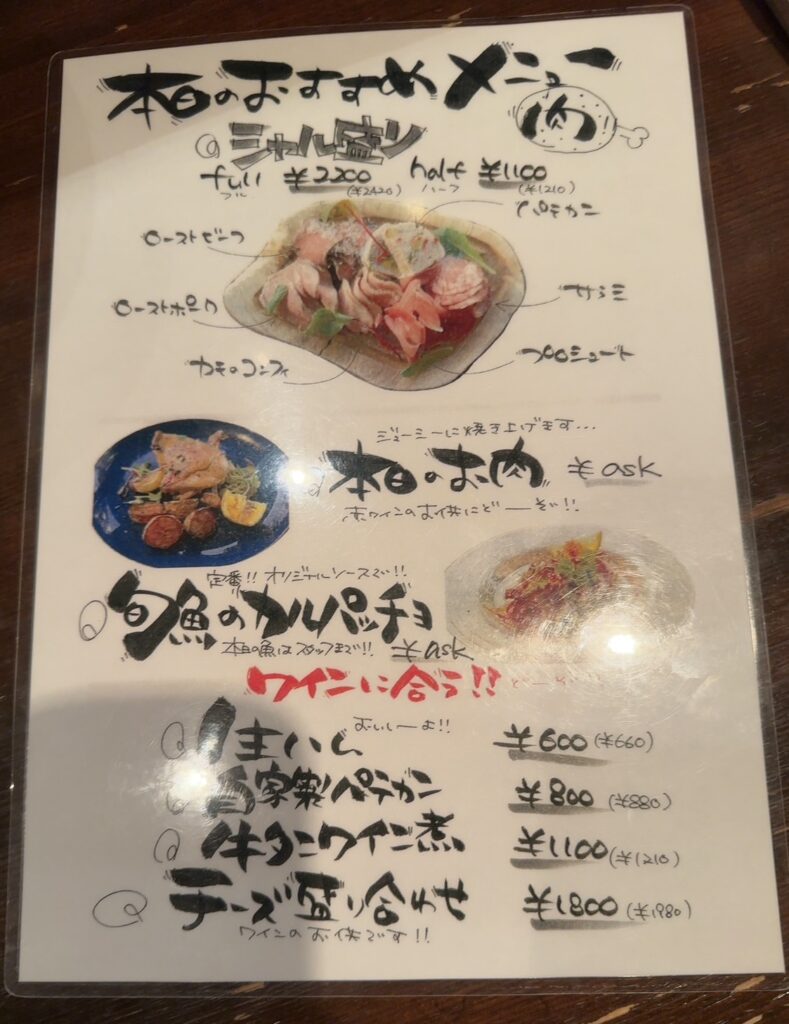 本日のおすすめメニュー
肉
シャル盛り
full ¥2200 (¥2420) half ¥1100 (¥1210)
フル ハーフ
パテカン
ローストビーフ
サラミ
ローストポーク
プロシュート
カモのコンフィ
ジューシーに焼き上げます...
本日のお肉 ¥ask
赤ワインのお供にどーぞ!!
定番!! オリジナルソースで!!
旬魚のカルパッチョ
本日の魚はスタッフまで!! ¥ask
ワインに合う!!
おいしーよ!!
生ハム ¥600 (¥660)
自家製パテカン ¥800 (¥880)
牛タンワイン煮 ¥1100 (¥1210)
チーズ盛り合わせ ¥1800 (¥1980)
ワインのお供です!!